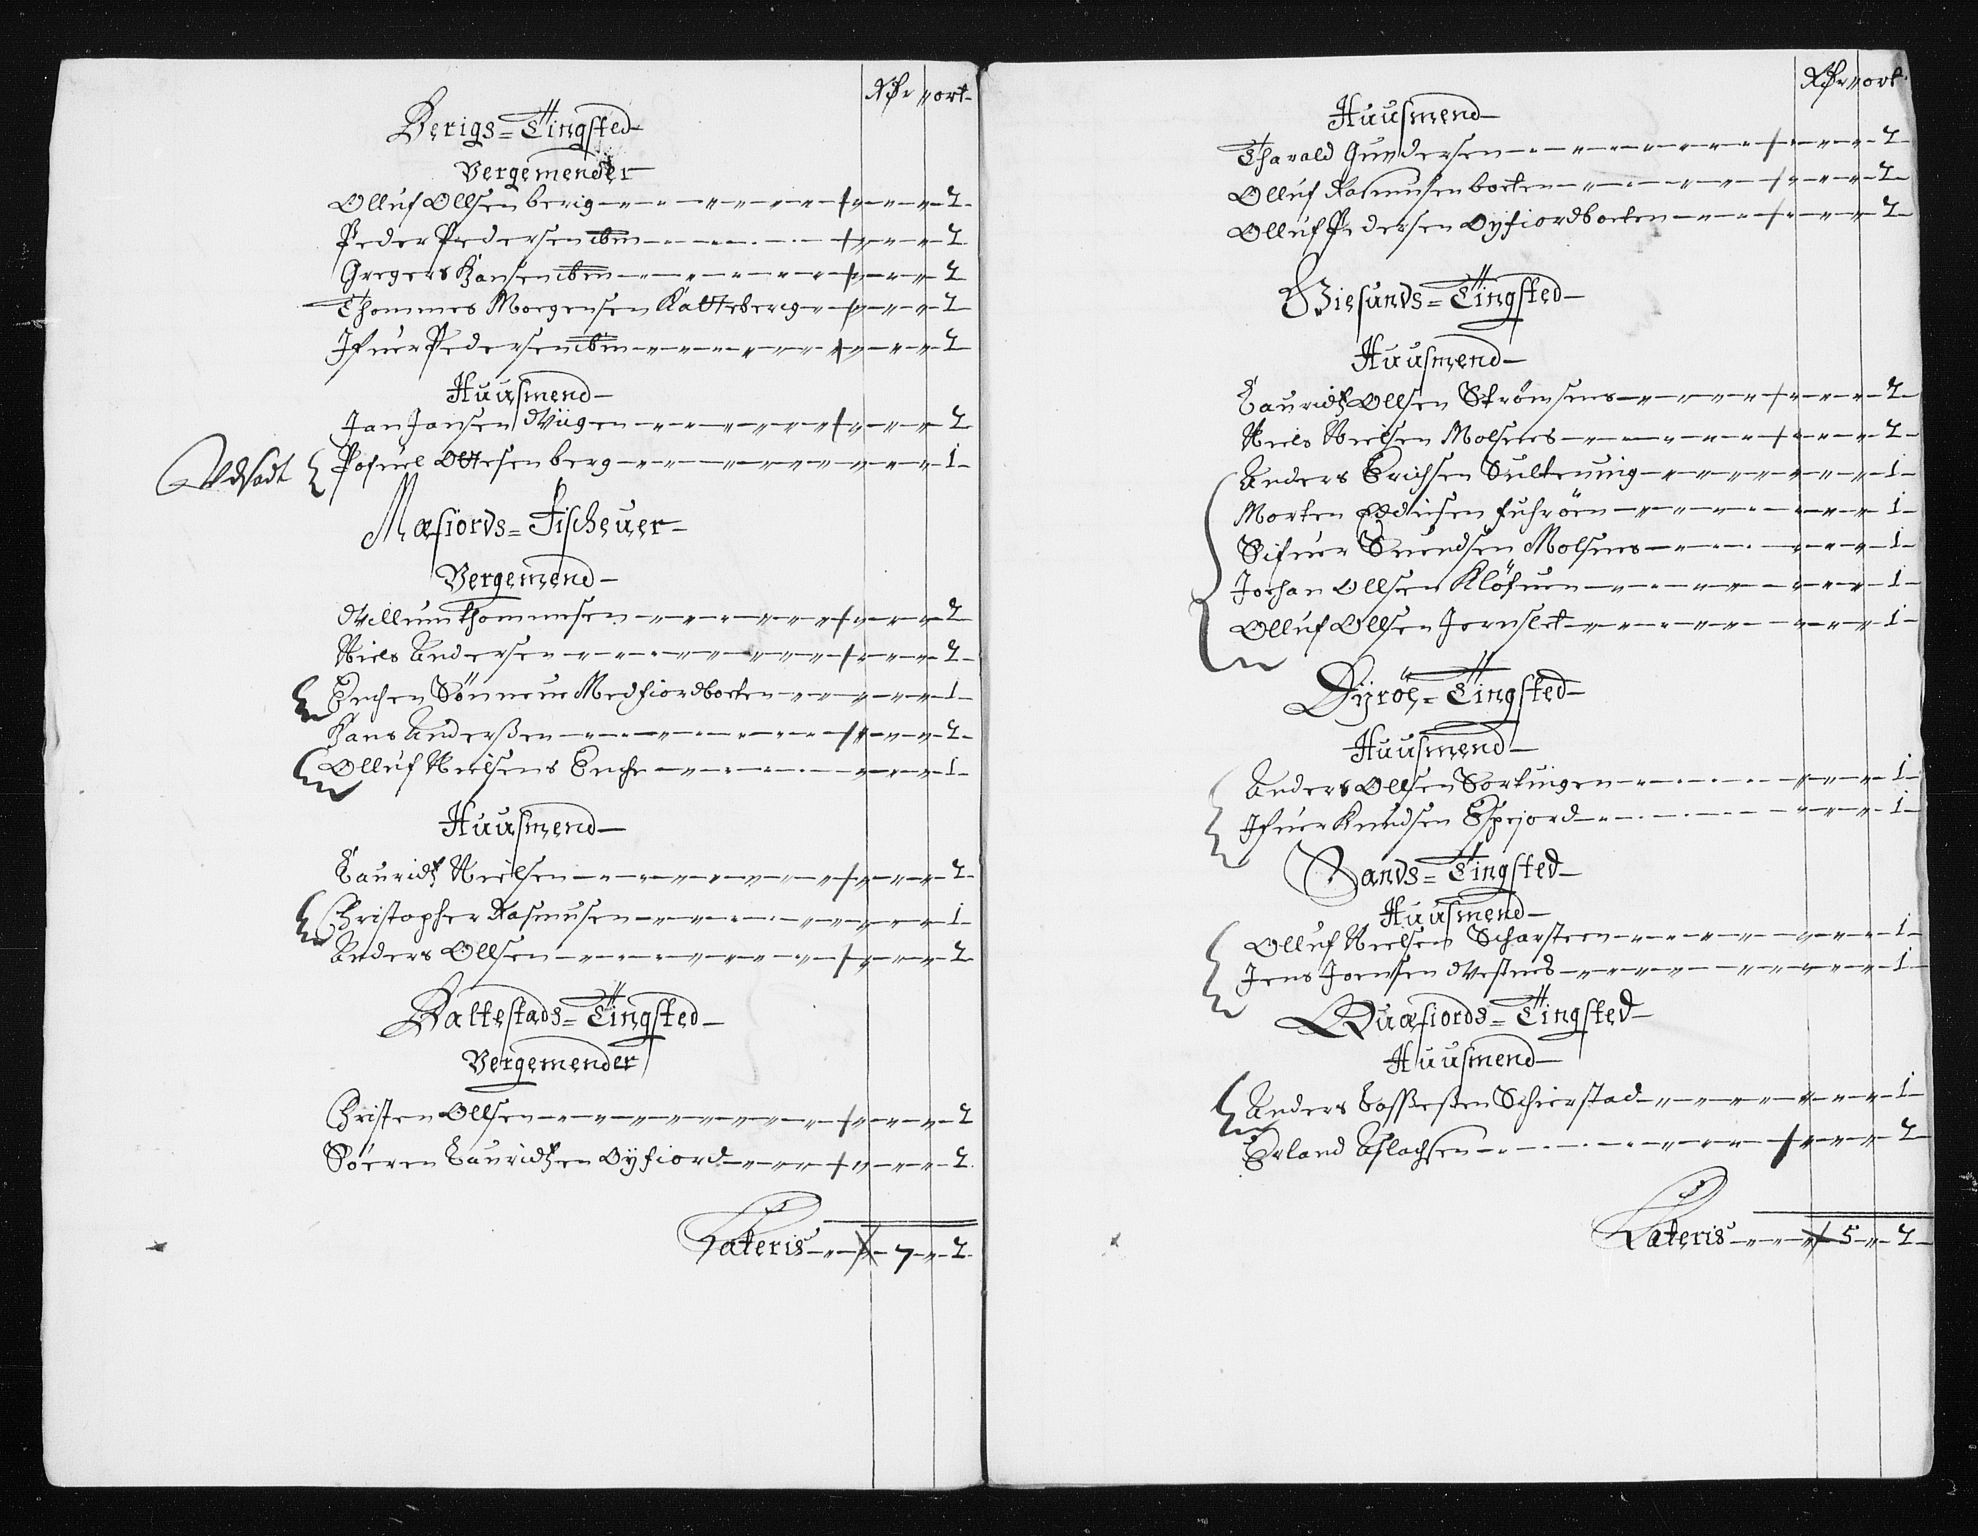 Rdr ort
Berigs = Tingsted
Vergemender
Olluf Ollsen berig 2
Peder Pedersen ibm 2
Gregers Hansen ibm 2
Thommes Morgensen Katteberg 2
Ifuer Pedersen ibm 2
Huusmend
Jan Jansen Wiigen 2
Vdsadt Pofuel Ottesen berg 1
Mæfiords = Fischeuer
Vergemend
Willum thommesen 2
Niels Andersen 2
Enchen Sönneue Medfiordbotten 1
Hans Anderßen 2
Olluf Nielsens Enche 1
Huusmend
Lauridtz Nielsen 2
Christopher Rasmusen 1
Anders Ollsen 2
Baltestads = Tingsted
Vergemender
Christen Ollsen 2
Söeren Lauridtzen Oyfiord 2
Lateris 7 2
Rdr ort
Huusmend
Tharald Gundersen 2
Olluf Rasmusen botten 2
Olluf Pedersen Oyfiordbotten 2
Giesunds = Tingsted
Huusmend
Lauridtz Ollsen Strömsens 2
Niels Nielsen Molsnes 2
Anders Erichsen Sultenuig 1
Morten fuhröen 1
Sifuer Suendsen Molsnes 1
Jochan Ollsen Klöfuen 1
Olluf Ollsen Jernslet 1
Dÿröe = Tingsted
Huusmend
Anders Ollsen Sortuigen 1
Ifuer Knudsen Espejord 1
Sands = Tingsted
Huusmend
Olluf Nielsen Scharsteen 1
Jens Joensen Vestnes 1
Quæfiords = Tingsted
Huusmend
Anders Toffßeßen Schierstad 1
Erland Aslachsen 2
Lateris 5 2